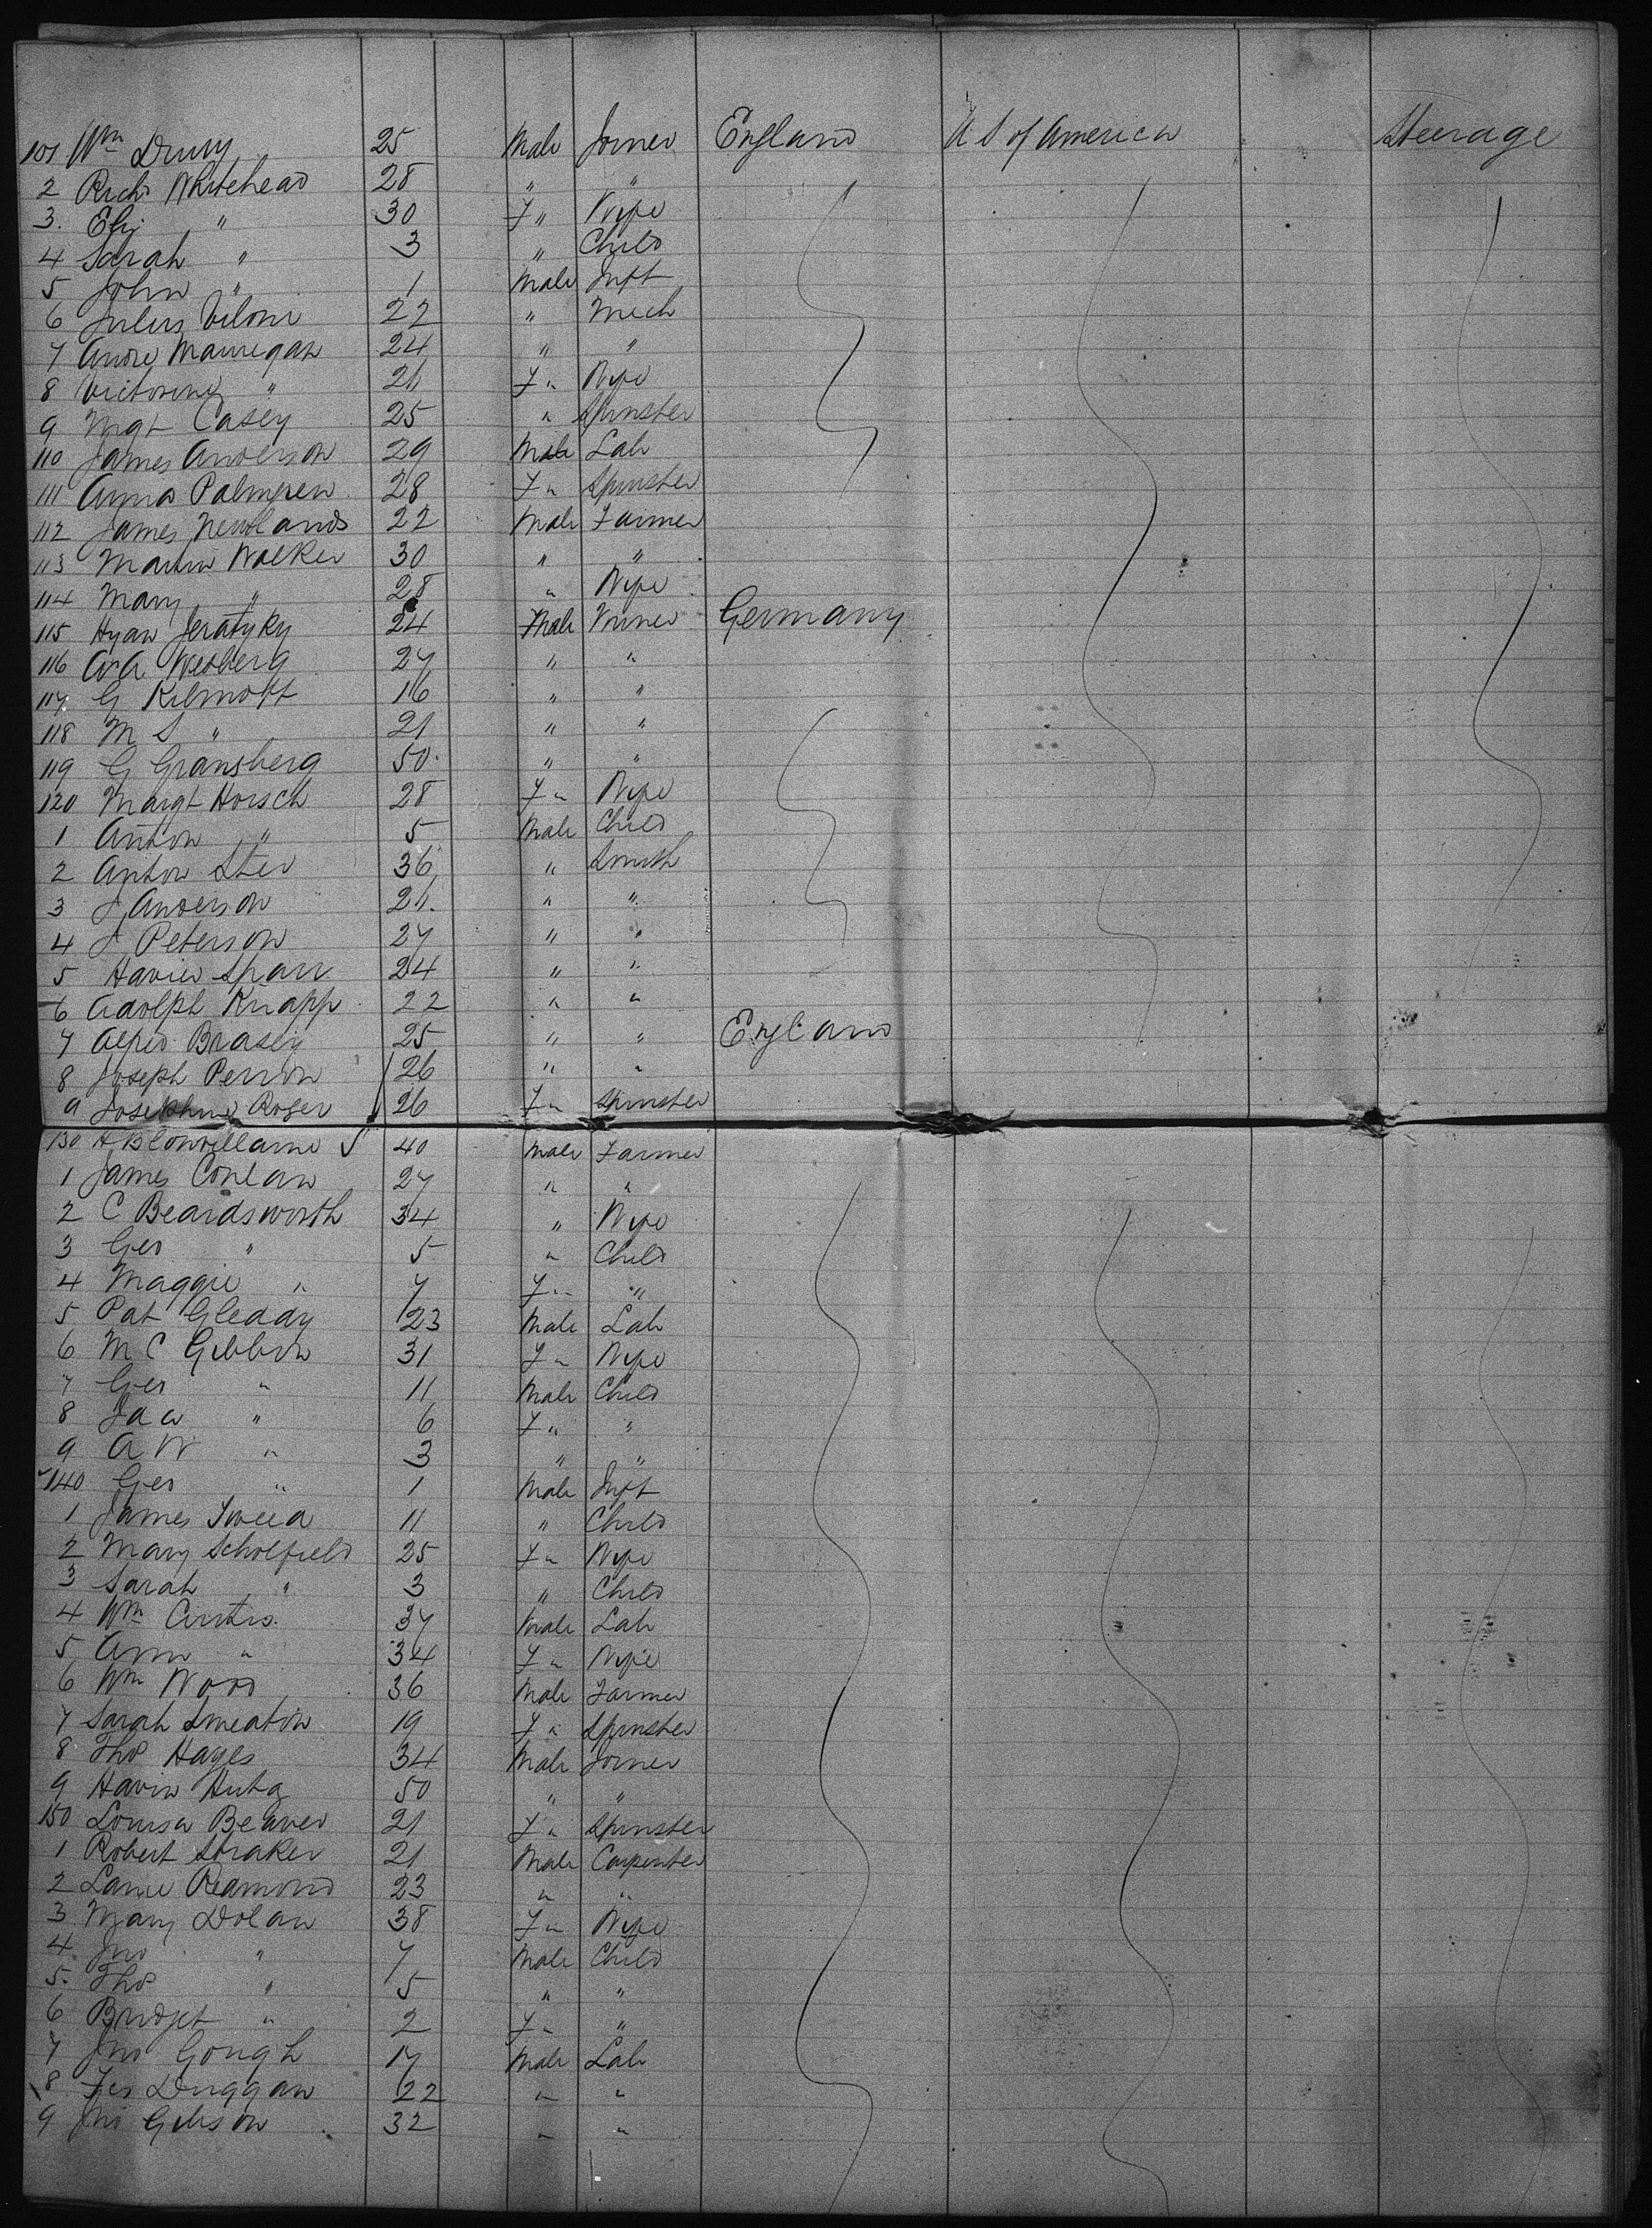 101 Wm Drury 25 Male Joiner England U S of America Steerage
2 Richd Whitehead 28 " "
3. Eliz " 30 F " Wife
4 Sarah " 3 " Child
5 John " 1 Male Inft
6 Julius 22 " Mech
7 Andre 24 " "
8 Victorine " 21 F " Wife
9 Mgt Casey 25 " Spinster
110 James Anderson 29 Male Lab
111 Anna Palmgren 28 F " Spinster
112 James Newlands 22 Male Farmer
113 Martin Walker 30 " "
114 Mary " 28 " Wife
115 24 Male Germany
116 27 " "
117 G 16 " "
118 M S " 21 " "
119 G Gransberg 50 " "
120 Margt Horsch 28 F " Wife
1 Anton " 5 Male Child
2 Anton 36 " Smith
3 J Anderson 21 " "
4 J Peterson 27 " "
5 24 " "
6 Adolph Knapp 22 " "
7 Alfred 25 " " England
8 Joseph Perron 26 " "
9 Josephine Roger 26 F " Spinster
130 40 Male Farmer
1 James Conlan 27 " "
2 C Beardsworth 34 " Wife
3 Geo " 5 " Child
4 Maggie " 7 F " "
5 Pat Gleady 23 Male Lab
6 M C Gibbon 31 F " Wife
7 Geo " 11 Male Child
8 " 6 F " "
9 A W " 3 " "
140 Geo " 1 Male Inft
1 James 11 " Child
2 Mary Scholfield 25 F " Wife
3 Sarah " 3 " Child
4 Wm Curtis 37 Male Lab
5 Ann " 34 F " Wife
6 Wm Wood 36 Male Farmer
7 Sarah Smeaton 19 F " Spinster
8 Thos Hayes 34 Male Joiner
9 50 " "
150 Louisa Beaver 21 F " Spinster
1 Robert Straker 21 Male Carpenter
2 23 " "
3 Mary Dolan 38 F " Wife
4 Jno " 7 Male Child
5. Thos " 5 " "
6 Bridget " 2 F " "
7 Jno Gough 17 Male Lab
8 Duggan 22 " "
9 Jno Gibson 32 " "